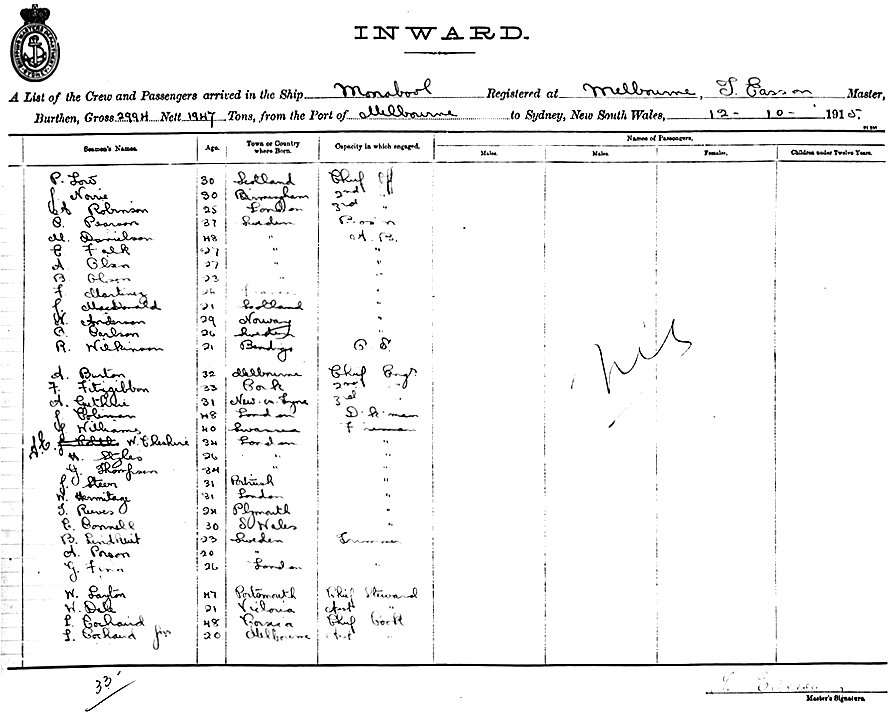 INWARD.
A List of the Crew and Passengers arrived in the Ship Monabool Registered at Melbourne, T. Casson Master,
Burthen, Gross 2994 Nett 1947 Tons, from the Port of Melbourne to Sydney, New South Wales, 12 - 10 - 1915.
Names of Passengers.
Seamen's Names. Age. Town or Country where Born. Capacity in which engaged. Males. Males. Females. Children under Twelve Years.
P. Low 30 Scotland Chief Off
J. Norrie 30 Birmingham 2nd "
A Robinson 25 London 3rd "
C. Pearson 37 Sweden Bos'n
M. Danielson 48 " A. B.
C Falk 27 " "
A Olsen 27 " "
B Olson 23 " "
F Martinez 26 "
J. Macdonald 21 Scotland "
W. Anderson 29 Norway "
C. Carlson 26 Sweden "
R. Wilkinson 21 Bendigo O S.
nil
A. Burton 32 Melbourne Chief Engr
F. Fitzgibbon 33 Cork 2nd "
A. Guthrie 31 New. on Tyne 3rd "
J Coleman 48 London D. k. man
J Williams 40 Swansea Fireman
W. Cheshire 34 London "
W. Styles 26 " "
G. Thompson 34 " "
J. Steen 31 "
W. Hermitage 31 London "
T. Reeves 24 Plymouth "
C. Connell 30 S Wales "
B. Lindkvit 23 Sweden Trimmer
A. Person 20 " "
G. Finn 26 London "
W. Layton 47 Portsmouth Chief Steward
W. Dele 21 Victoria "
L. Cochaud 48 Chief Cook
L. Cochaud Jnr 20 Melbourne "
33
Master's Signature.